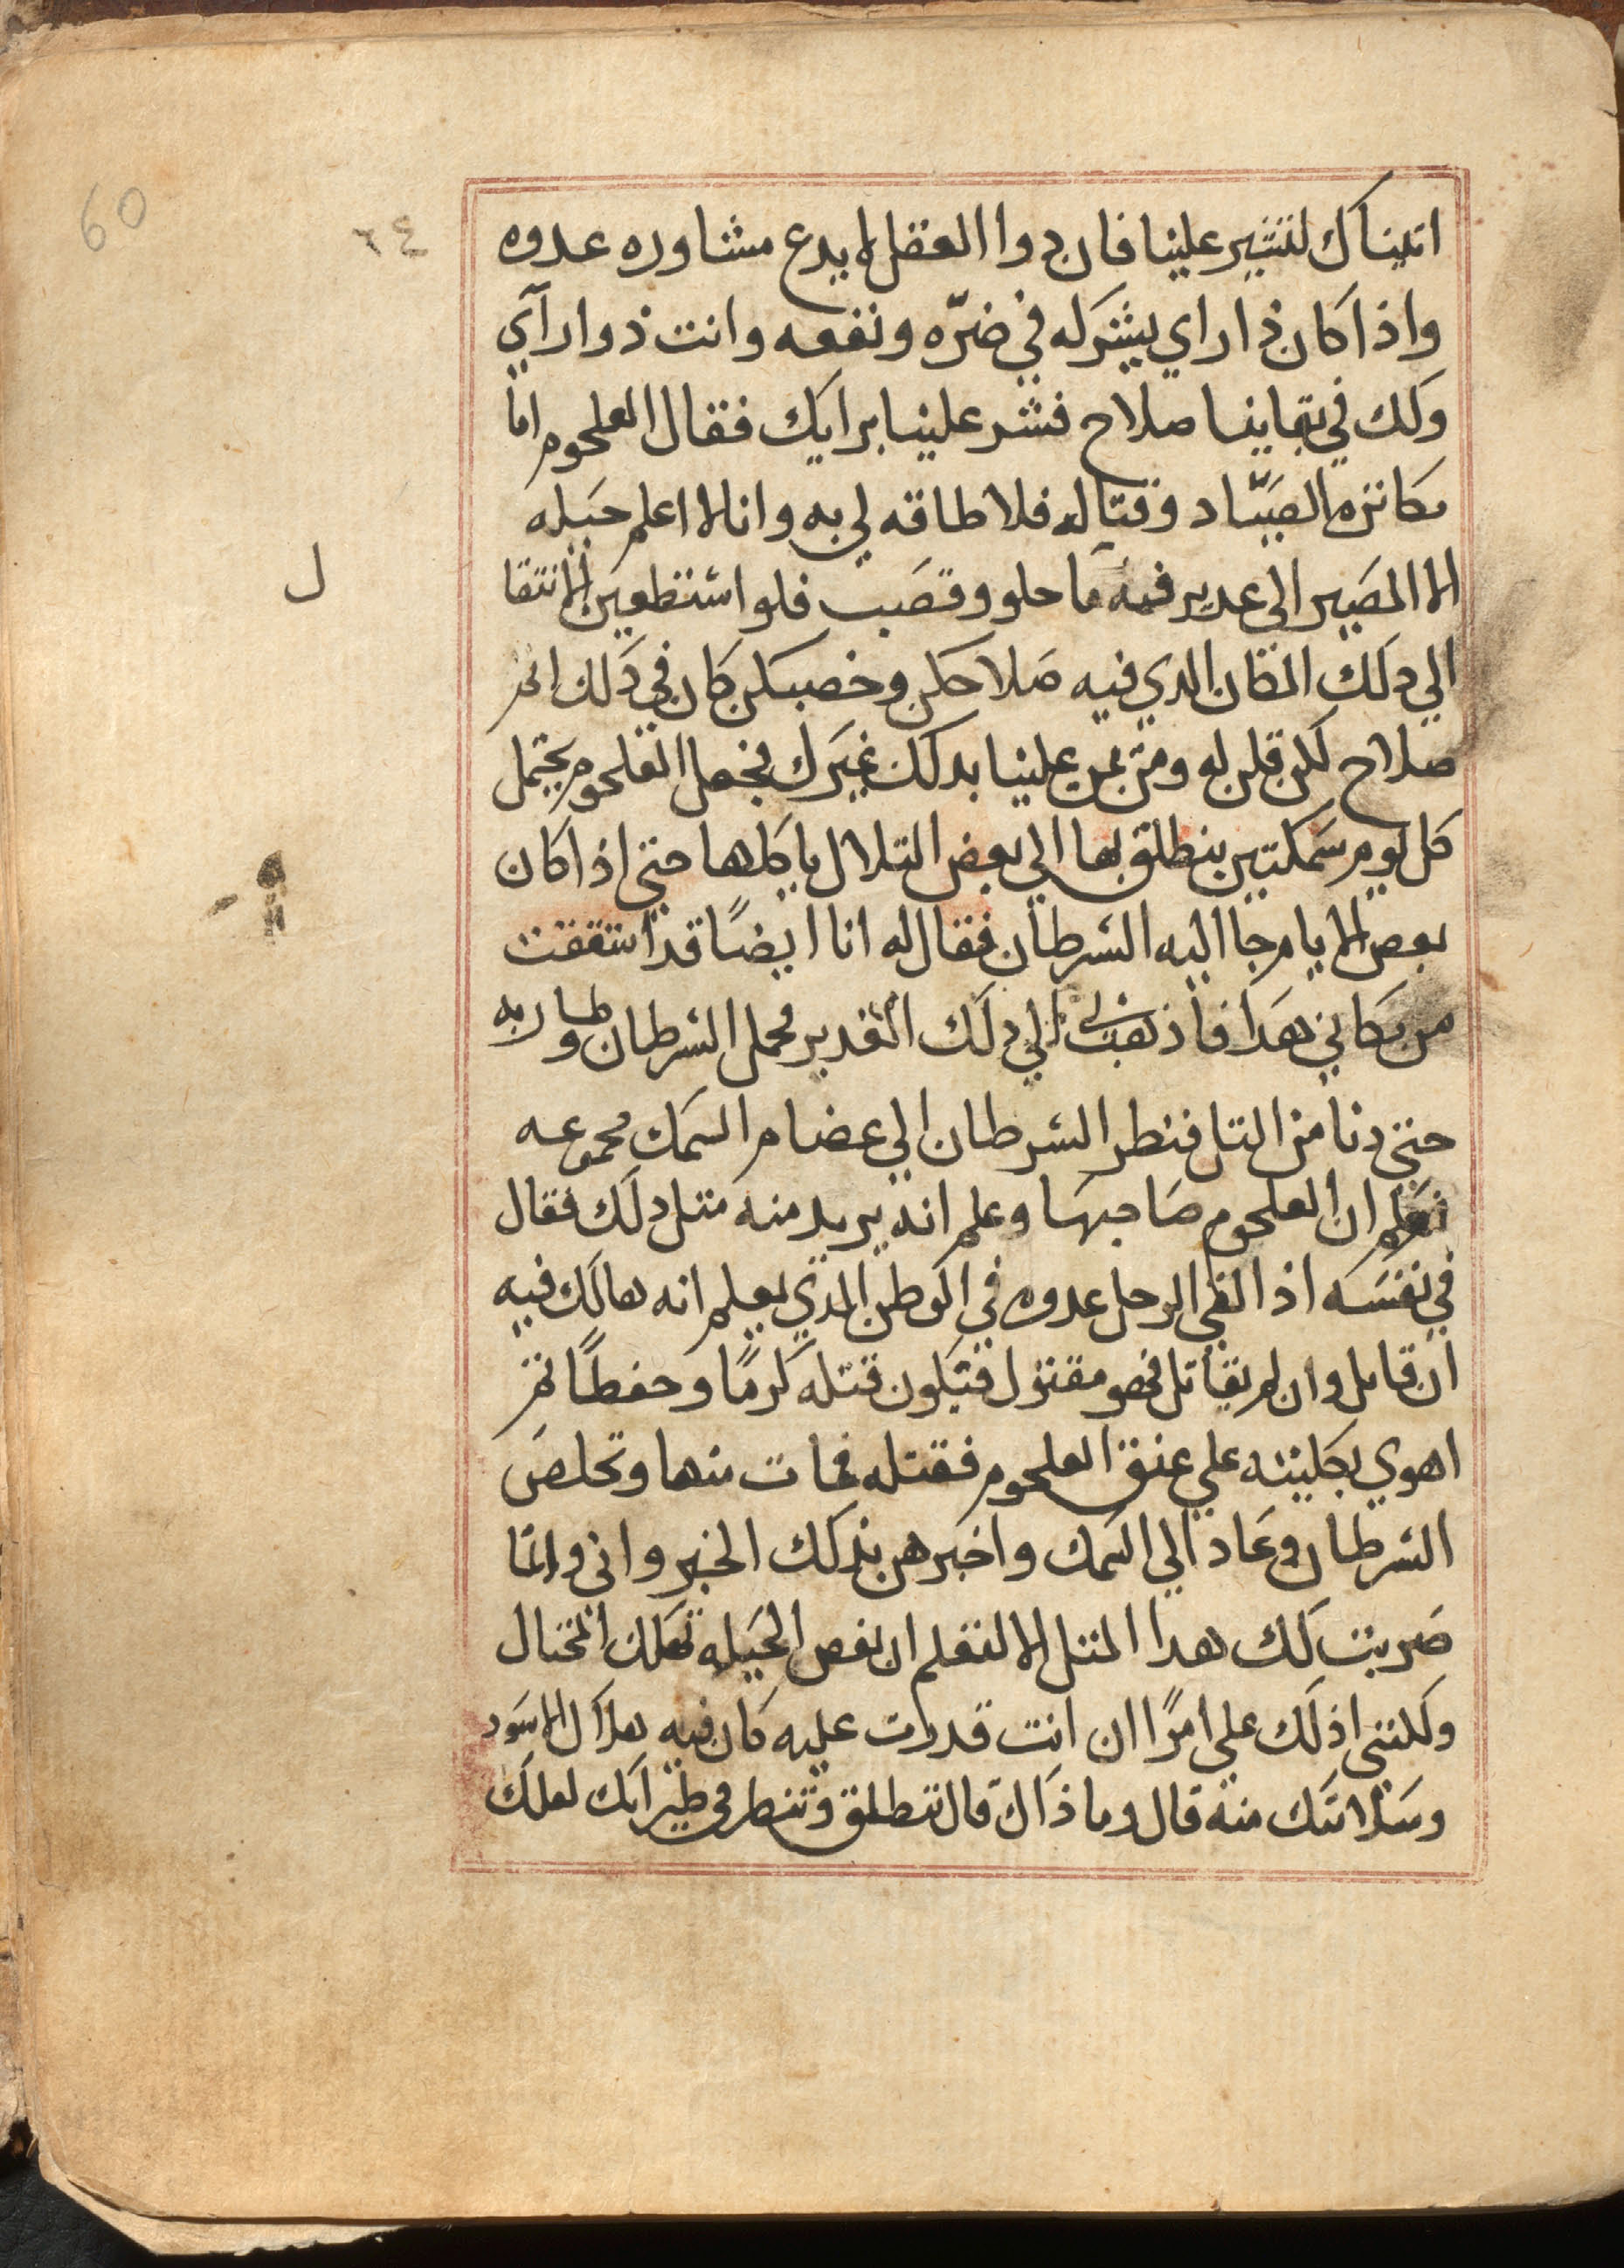 60
٦٤
اتيناك لتشير علينا فان دوا العقل لا يدع مشاوره عدوه
واذا كان ذا راي يشركه في ضرّه ونفعه وانت ذوا رآي
ولك في بقاينا صلاح فشر علينا برايك فقال العلجوم اما
مكانزه الصيّاد وقتاله فلا طاقه لي به وانا لا اعلم حيله
الا المصير الي غدير فيه ما حلو وقصب فلو استطعين الانتقا
ل
الي دلك المكان الدي فيه صلاحكن وخصبكن كان في دلك
صلاح لكن قلن له ومن يمن علينا بدلك غيرك فجعل العلجوم يحتمل
كل يوم سمكتين ينطلق بها الي بعض التلال ياكلها حتي اذا كان
بعض الايام جا اليه السرطان فقال له انا ايضًا قد اشفقت
من مكاني هدا فاذهب بي الي دلك الغدير فحمل السرطان وطار به
حتي دنا من التل فنطر السرطان الي عضام السمك مجموعه
فعلم ان العلجوم صاحبها وعلم انه يريد منه متل دلك فقال
في نفسه اذا لقي الرجل عدوه في الوطن الدي يعلم انه هالك فيه
ان قاتل وان لم يقاتل فهو مقتول فيكون قتله كرمًا وحفظًا ثم
اهوي بكلبتيه علي عنق العلجوم فقتله فمات منها وتخلص
السرطان وعاد الي السمك واخبرهن بدلك الخبر واني وانما
ضربت لك هدا المتل الا لتعلم ان بعض الحيله تهلك المحتال
ولكنني ادلك علي امرًا ان انت قدرت عليه كان فيه هلاك الاسود
وسلامتك منه قال وما ذاك قال تنطلق وتنظر في طيرانك لعلك